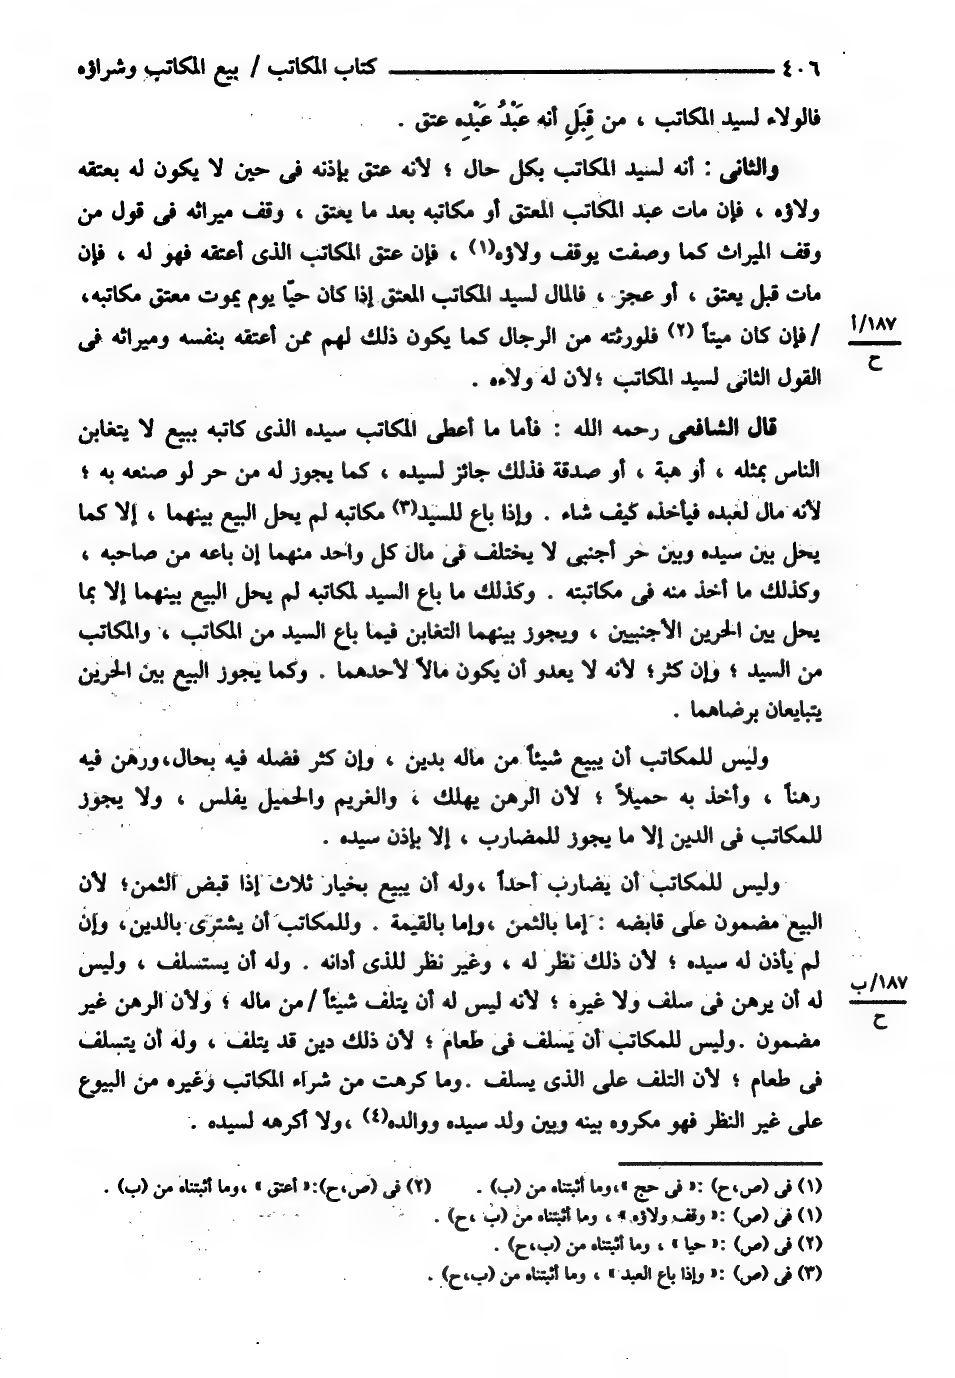 ٤٠٦ ــــــ كتاب المكاتب / بيع المكاتب وشراؤه
فالولاء لسيد المكاتب ، من قِبَلِ أنه عَبْدُ عَبْدِهِ عتق .
والثانى : أنه لسيد المكاتب بكل حال ؛ لأنه عتق بإذنه فى حين لا يكون له بعتقه
ولاؤه ، فإن مات عبد المكاتب المعتق أو مكاتبه بعد ما يعتق ، وقف ميراثه فى قول من
وقف الميراث كما وصفت يوقف ولاؤه(١) ، فإن عتق المكاتب الذى أعتقه فهو له ، فإن
مات قبل يعتق ، أو عجز ، فالمال لسيد المكاتب المعتق إذا كان حيّا يوم يموت معتق مكاتبه،
١٨٧/أ
/فإن كان ميتاً (٢) فلورثته من الرجال كما يكون ذلك لهم ممن أعتقه بنفسه وميراثه فى
ح
القول الثانى لسيد المكاتب ؛لأن له ولاءه .
قال الشافعى رحمه الله : فأما ما أعطى المكاتب سيده الذى كاتبه ببيع لا يتغابن
الناس بمثله ، أو هبة ، أو صدقة فذلك جائز لسيده ، كما يجوز له من حر لو صنعه به ؛
لأنه مال لعبده فيأخذه كيف شاء . وإذا باع للسيد(٣) مكاتبه لم يحل البيع بينهما ، إلا كما
يحل بين سيده وبين حر أجنبى لا يختلف فى مال كل واحد منهما إن باعه من صاحبه ،
وكذلك ما أخذ منه فى مكاتبته . وكذلك ما باع السيد لمكاتبه لم يحل البيع بينهما إلا بما
يحل بين الحرين الأجنبيين ، ويجوز بينهما التغابن فيما باع السيد من المكاتب ، والمكاتب
من السيد ؛ وإن كثر؛ لأنه لا يعدو أن يكون مالاً لأحدهما . وكما يجوز البيع بين الحرين
يتبايعان برضاهما .
وليس للمكاتب أن يبيع شيئاً من ماله بدين ، وإن كثر فضله فيه بحال،ورهن فيه
رهناً ، وأخذ به حميلاً ؛ لأن الرهن يهلك ، والغريم والحميل يفلس ، ولا يجوز
للمكاتب فى الدين إلا ما يجوز للمضارب ، إلا بإذن سيده .
وليس للمكاتب أن يضارب أحداً ،وله أن يبيع بخيار ثلاث إذا قبض الثمن؛ لأن
البيع مضمون على قابضه : إما بالثمن ،وإما بالقيمة . وللمكاتب أن يشترى بالدين، وإن
لم يأذن له سيده ؛ لأن ذلك نظر له ، وغير نظر للذى أدانه . وله أن يستسلف ، وليس
١٨٧/ب
له أن يرهن فى سلف ولا غيره ؛ لأنه ليس له أن يتلف شيئاً /من ماله ؛ ولأن الرهن غير
ح
مضمون .وليس للمكاتب أن يَسلف فى طعام ؛ لأن ذلك دين قد يتلف ، وله أن يتسلف
فى طعام ؛ لأن التلف على الذى يسلف .وما كرهت من شراء المكاتب وغيره من البيوع
على غير النظر فهو مكروه بينه وبين ولد سيده ووالده(٤) ،ولا أكرهه لسيده .
(١) فى (ص،ح) :« فى حج »،وما أثبتناه من (ب) . (٢) فى (ص،ح):« أعتق » ،وما أثبتناه من (ب) .
(١) فى (ص) :« وقف ولاؤه » ، وما أثبتناه من (ب ،ح) .
(٢) فى (ص) :« حيا » ، وما أثبتناه من (ب،ح) .
(٣) فى (ص) :« وإذا باع العبد » ، وما أثبتناه من (ب،ح) .